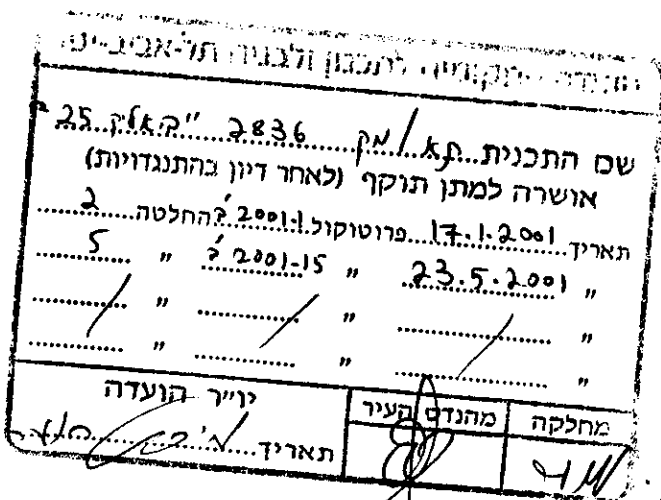 הועדה המקומית לתכנון ולבניה תל-אביב-יפו
שם התכנית תא/מק 2836 "ביאליק 25"
אושרה למתן תוקף (לאחר דיון בהתנגדויות)
תאריך 17.1.2001 פרוטוקול 2001-1 החלטה 2
" 23.5.2001 " 2001-15 " 5
" / " / " /
" " "
מחלקה מהנדס העיר יו״ר הועדה
תאריך